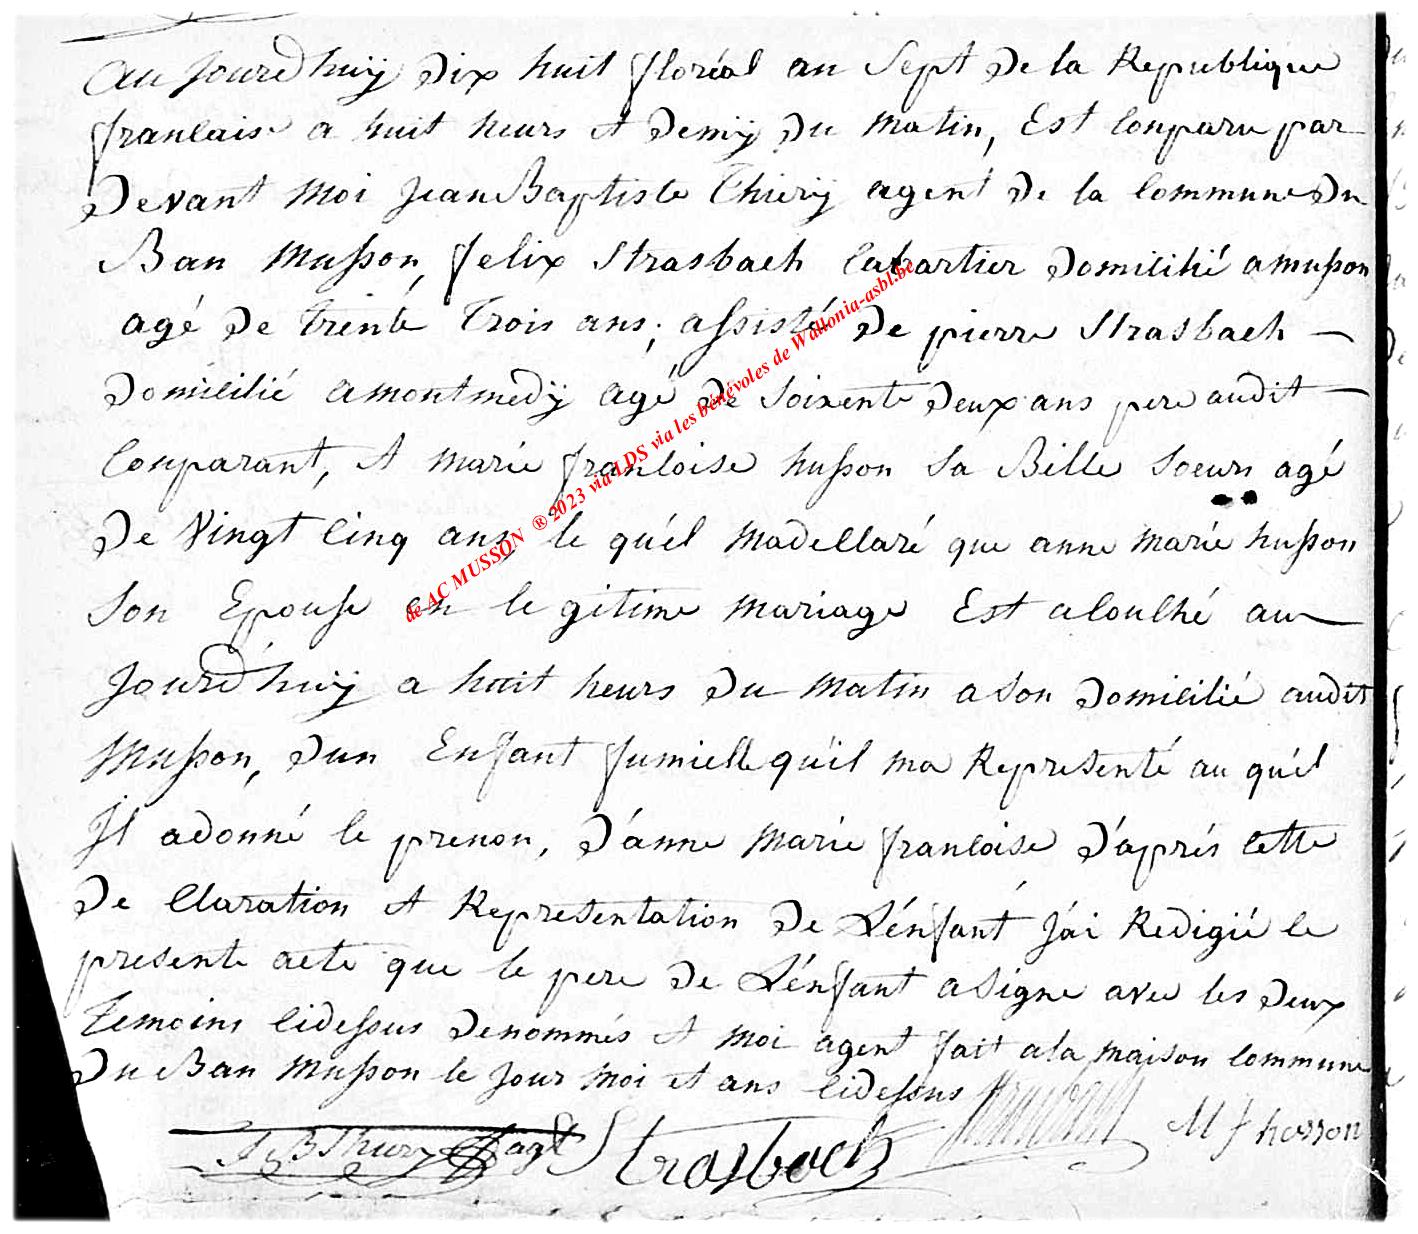 Aujourdhuÿ dix huit floréal an Sept de la Republique
francaise a huit heurs et demÿ du matin, Est Conparu par
devant moi Jean Baptiste Thierÿ agent de la Commune du
Ban Musson, felix Strasbach Cabartier domicilié a musson
agé de trente trois ans, assisté de pierre Strasbach
domicilié a montmedÿ agé de Soixente deux ans pere audit
Conparant, et marie francoise husson Sa Belle Soeurs agé
de Vingt Cinq ans le quél ma declaré que anne marie husson
Son Epouse en le gitime mariage Est acouché au
Jourdhuÿ a huit heurs du matin a Son domicilié audit
Musson, dun Enfant fumielle quil ma Representé au quél
Il a donné le prenon, d'anne Marie francoise d'aprés cette
de Claration et Representation de L'énfant J'ai Redigié le
presente acte que le pere de L'énfant a Signe avec les deux
temoins Cidessus denommés et moi agent fait a la maison Commune
du Ban Musson le Jour moi et ans Cidessus
J B Thiery agt Strasbach M f hosson
de AC MUSSON ® 2023 via LDS via les bénévoles de Wallonia-asbl.be